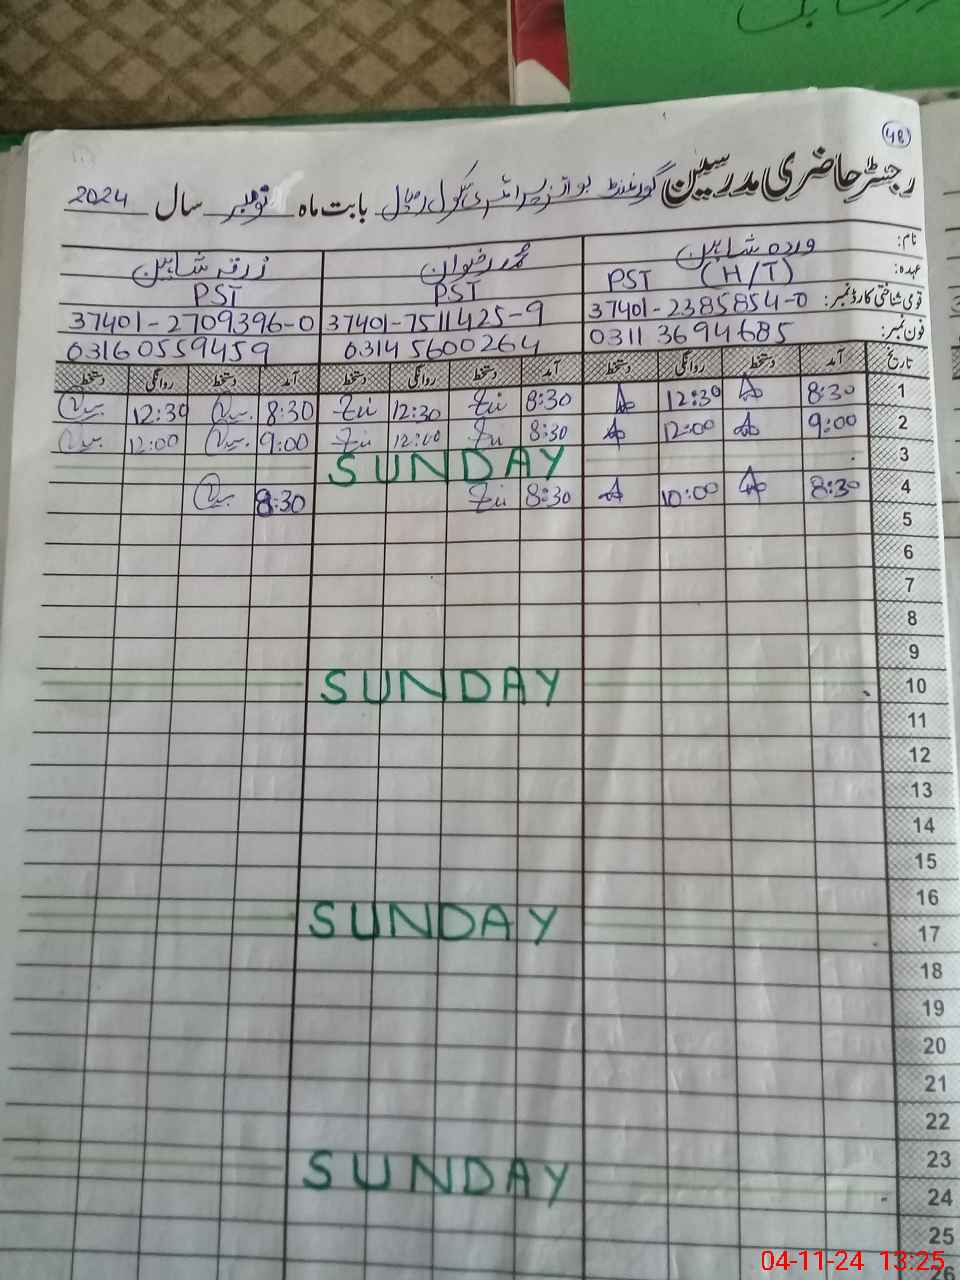 48
رجسٹر حاضری مدرسین گورنمنٹ بوائز پرائمری سکول بابت ماہ نومبر سال 2024
نام: وردہ شاہین محمد رضوان زرقہ شاہین
عہدہ: PST (H/T) PST PST
قومی شناختی کارڈ نمبر: 37401-2385854-0 37401-7511425-9 37401-2709396-0
فون نمبر: 0311 3694685 03145600264 03160559459
تاریخ آمد دستخط روانگی دستخط آمد دستخط روانگی دستخط آمد دستخط روانگی دستخط
1 8:30 12:30 8:30 12:30 8:30 12:30
2 9:00 12:00 8:30 12:00 9:00 12:00
3 SUNDAY
4 8:30 10:00 8:30 8:30
5
6
7
8
9
10 SUNDAY
11
12
13
14
15
16
17 SUNDAY
18
19
20
21
22
23
24 SUNDAY
25
26
04-11-24 13:25